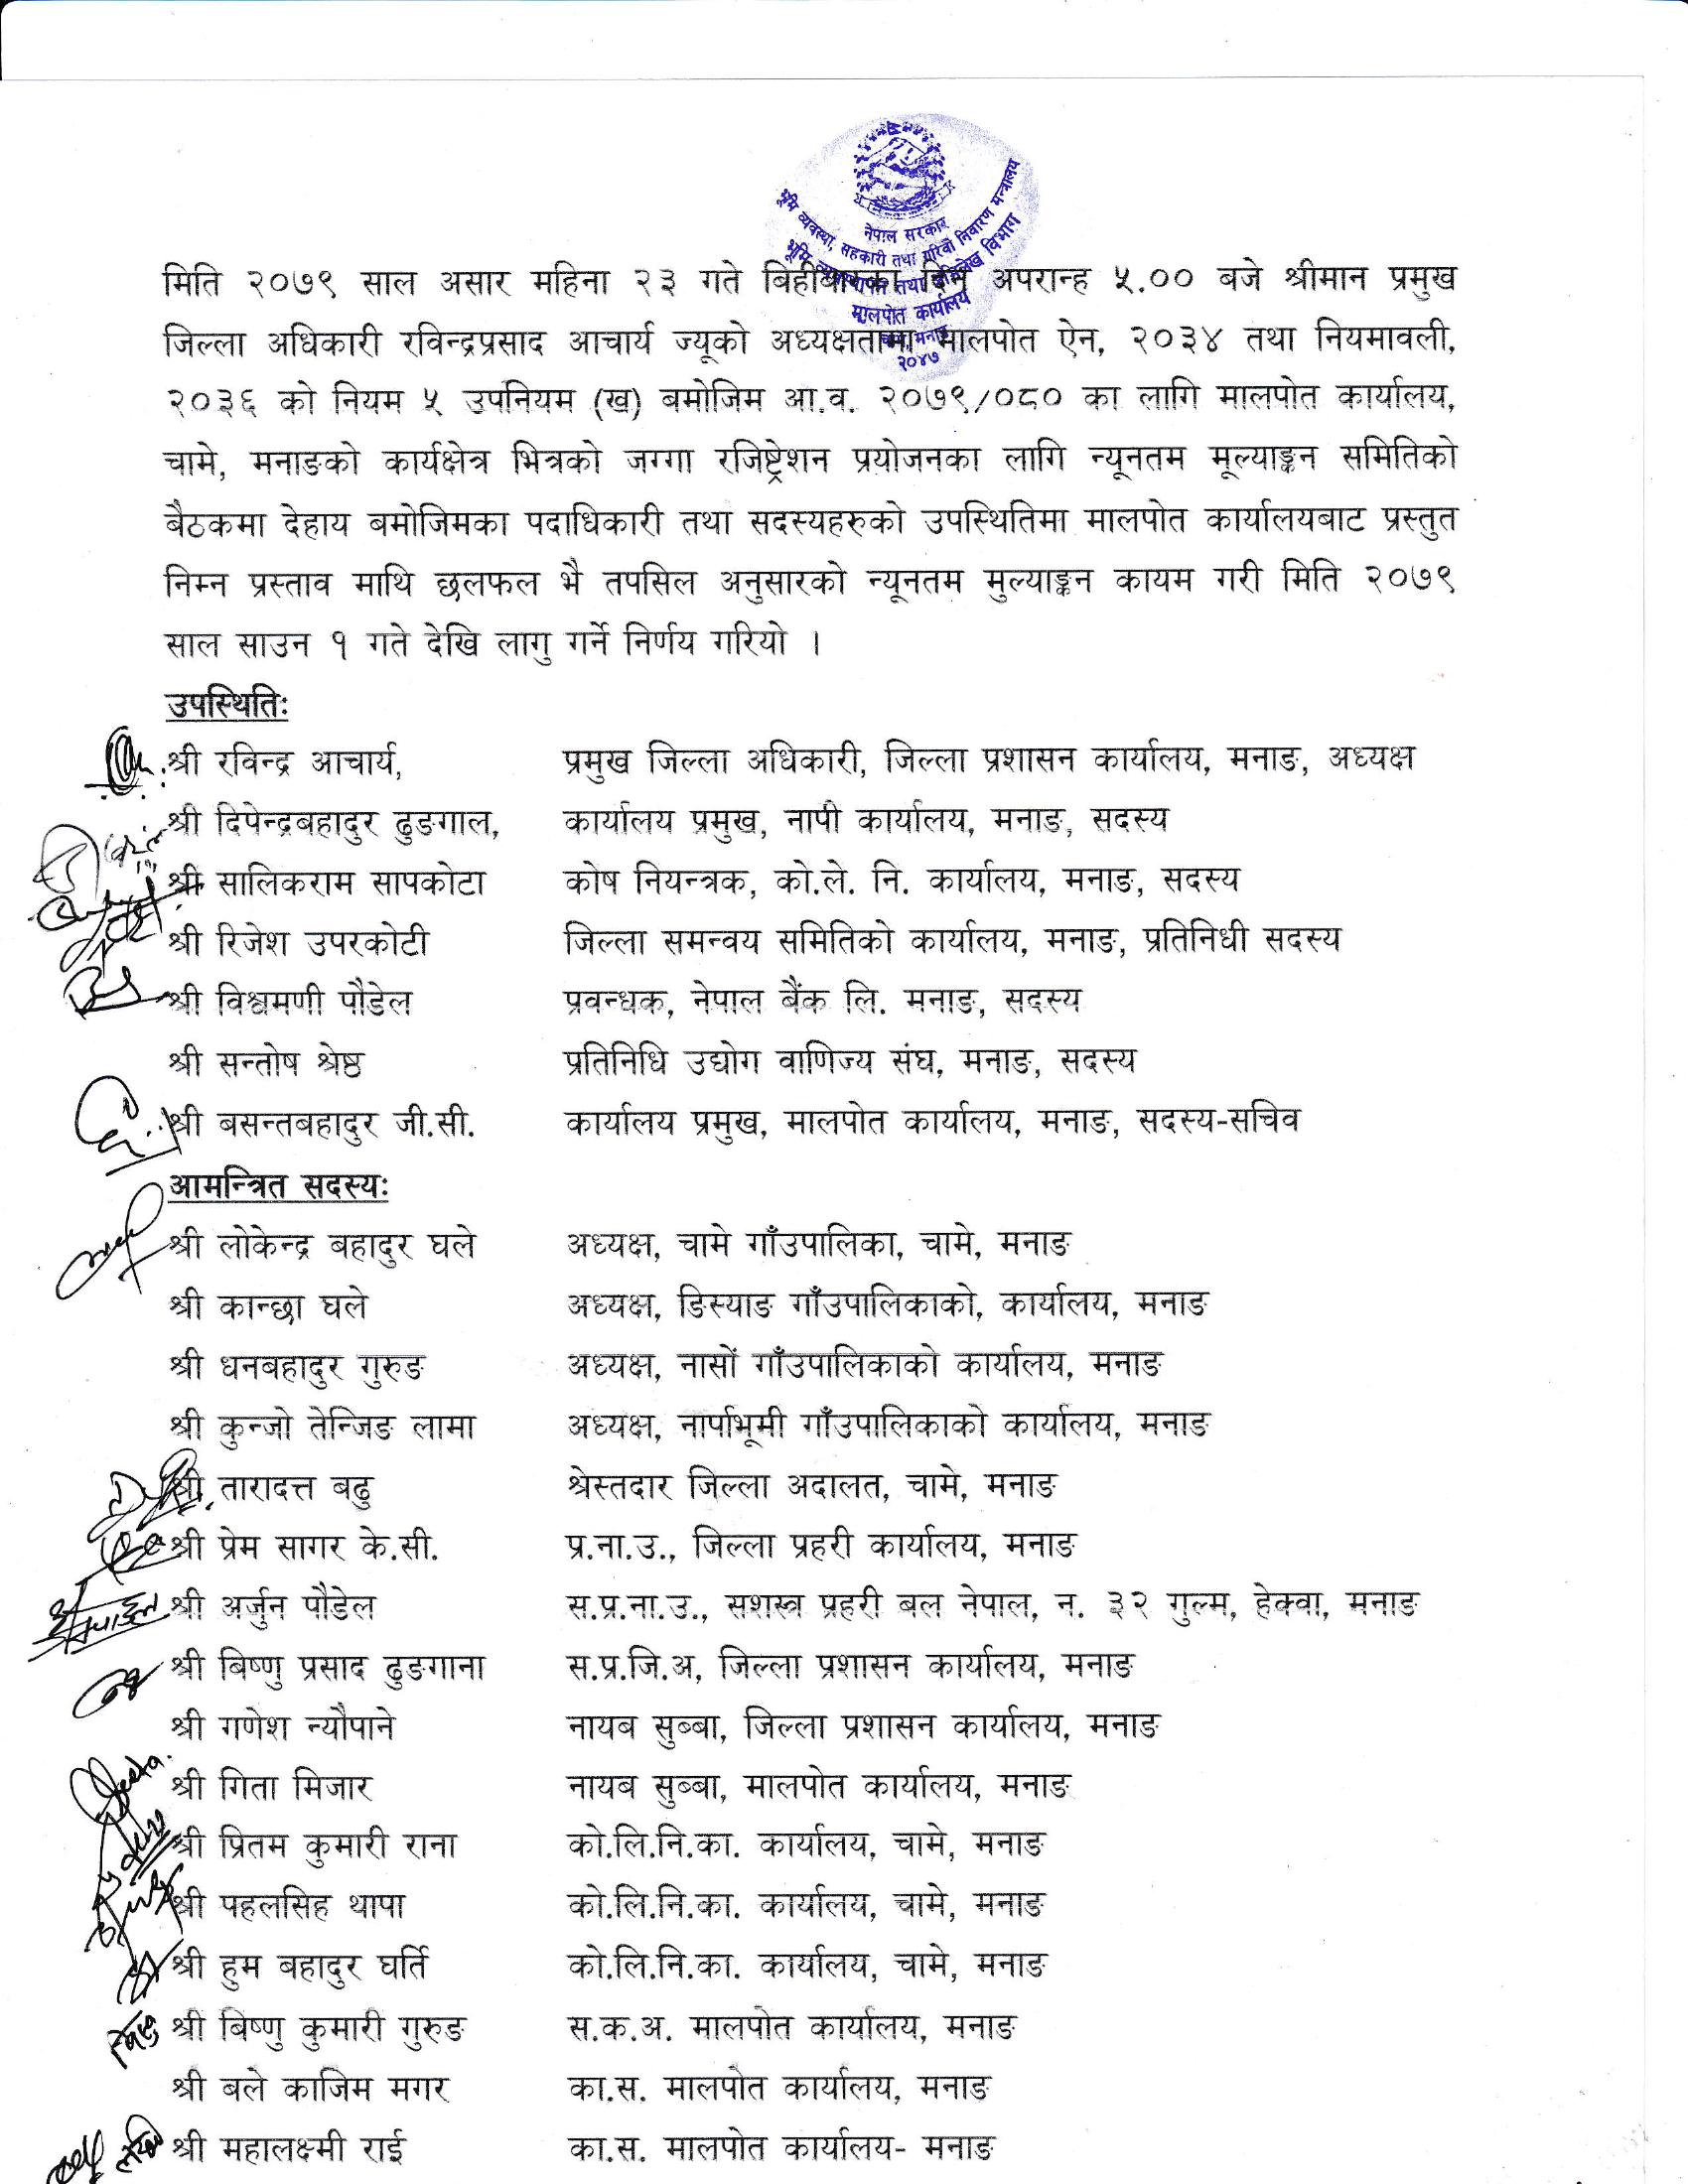 नेपाल सरकार
भूमि व्यवस्था, सहकारी तथा गरिवी निवारण मन्त्रालय
भूमि व्यवस्थापन तथा अभिलेख विभाग
मालपोत कार्यालय
चामे, मनाङ
२०४७
मिति २०७९ साल असार महिना २३ गते बिहीबारका दिन अपरान्ह ५.०० बजे श्रीमान प्रमुख
जिल्ला अधिकारी रविन्द्रप्रसाद आचार्य ज्यूको अध्यक्षतामा मालपोत ऐन, २०३४ तथा नियमावली,
२०३६ को नियम ५ उपनियम (ख) बमोजिम आ.व. २०७९/०८० का लागि मालपोत कार्यालय,
चामे, मनाङको कार्यक्षेत्र भित्रको जग्गा रजिष्ट्रेशन प्रयोजनका लागि न्यूनतम मूल्याङ्कन समितिको
बैठकमा देहाय बमोजिमका पदाधिकारी तथा सदस्यहरुको उपस्थितिमा मालपोत कार्यालयबाट प्रस्तुत
निम्न प्रस्ताव माथि छलफल भै तपसिल अनुसारको न्यूनतम मुल्याङ्कन कायम गरी मिति २०७९
साल साउन १ गते देखि लागु गर्ने निर्णय गरियो ।
उपस्थितिः
श्री रविन्द्र आचार्य, प्रमुख जिल्ला अधिकारी, जिल्ला प्रशासन कार्यालय, मनाङ, अध्यक्ष
श्री दिपेन्द्रबहादुर ढुङगाल, कार्यालय प्रमुख, नापी कार्यालय, मनाङ, सदस्य
श्री सालिकराम सापकोटा कोष नियन्त्रक, को.ले. नि. कार्यालय, मनाङ, सदस्य
श्री रिजेश उपरकोटी जिल्ला समन्वय समितिको कार्यालय, मनाङ, प्रतिनिधी सदस्य
श्री विश्वमणी पौडेल प्रवन्धक, नेपाल बैंक लि. मनाङ, सदस्य
श्री सन्तोष श्रेष्ठ प्रतिनिधि उद्योग वाणिज्य संघ, मनाङ, सदस्य
श्री बसन्तबहादुर जी.सी. कार्यालय प्रमुख, मालपोत कार्यालय, मनाङ, सदस्य-सचिव
आमन्त्रित सदस्यः
श्री लोकेन्द्र बहादुर घले अध्यक्ष, चामे गाँउपालिका, चामे, मनाङ
श्री कान्छा घले अध्यक्ष, ङिस्याङ गाँउपालिकाको, कार्यालय, मनाङ
श्री धनबहादुर गुरुङ अध्यक्ष, नासों गाँउपालिकाको कार्यालय, मनाङ
श्री कुन्जो तेन्जिङ लामा अध्यक्ष, नार्पाभूमी गाँउपालिकाको कार्यालय, मनाङ
श्री तारादत्त बढु श्रेस्तदार जिल्ला अदालत, चामे, मनाङ
श्री प्रेम सागर के.सी. प्र.ना.उ., जिल्ला प्रहरी कार्यालय, मनाङ
श्री अर्जुन पौडेल स.प्र.ना.उ., सशस्त्र प्रहरी बल नेपाल, न. ३२ गुल्म, हेक्वा, मनाङ
श्री बिष्णु प्रसाद ढुङगाना स.प्र.जि.अ, जिल्ला प्रशासन कार्यालय, मनाङ
श्री गणेश न्यौपाने नायब सुब्बा, जिल्ला प्रशासन कार्यालय, मनाङ
श्री गिता मिजार नायब सुब्बा, मालपोत कार्यालय, मनाङ
श्री प्रितम कुमारी राना को.लि.नि.का. कार्यालय, चामे, मनाङ
श्री पहलसिह थापा को.लि.नि.का. कार्यालय, चामे, मनाङ
श्री हुम बहादुर घर्ति को.लि.नि.का. कार्यालय, चामे, मनाङ
श्री बिष्णु कुमारी गुरुङ स.क.अ. मालपोत कार्यालय, मनाङ
श्री बले काजिम मगर का.स. मालपोत कार्यालय, मनाङ
श्री महालक्ष्मी राई का.स. मालपोत कार्यालय- मनाङ